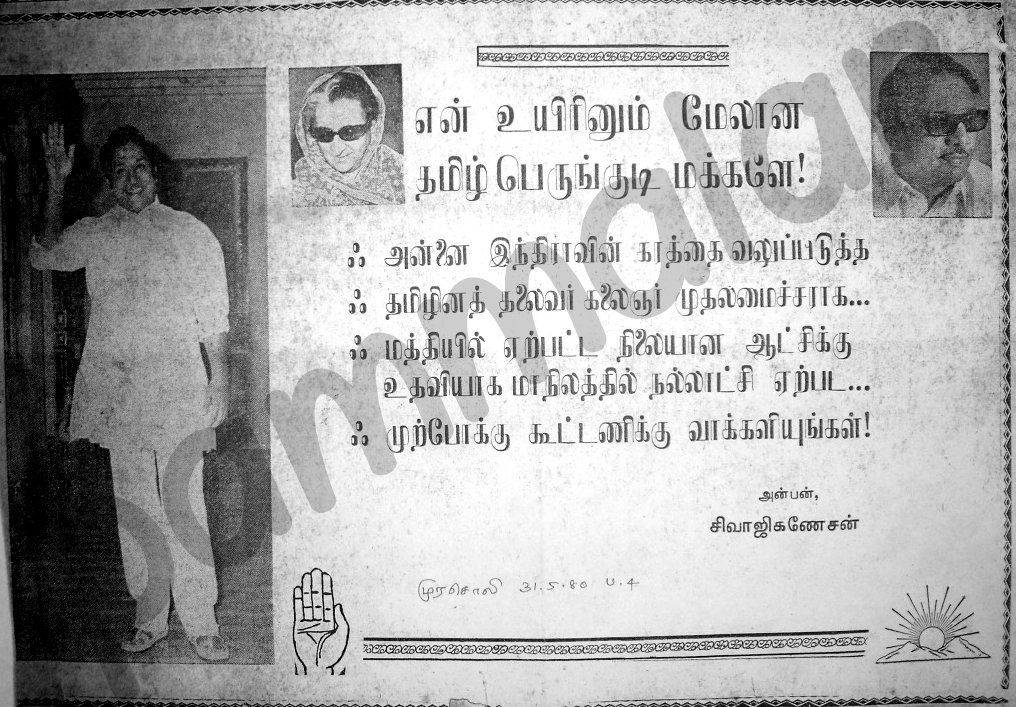 என் உயிரினும் மேலான
தமிழ் பெருங்குடி மக்களே!
ஃ அன்னை இந்திராவின் கரத்தை வலுப்படுத்த
ஃ தமிழினத் தலைவர் கலைஞர் முதலமைச்சராக...
ஃ மத்தியில் ஏற்பட்ட நிலையான ஆட்சிக்கு
உதவியாக மாநிலத்தில் நல்லாட்சி ஏற்பட...
ஃ முற்போக்கு கூட்டணிக்கு வாக்களியுங்கள்!
அன்பன்,
சிவாஜிகணேசன்
முரசொலி 31.5.80 ப.4
pammalar